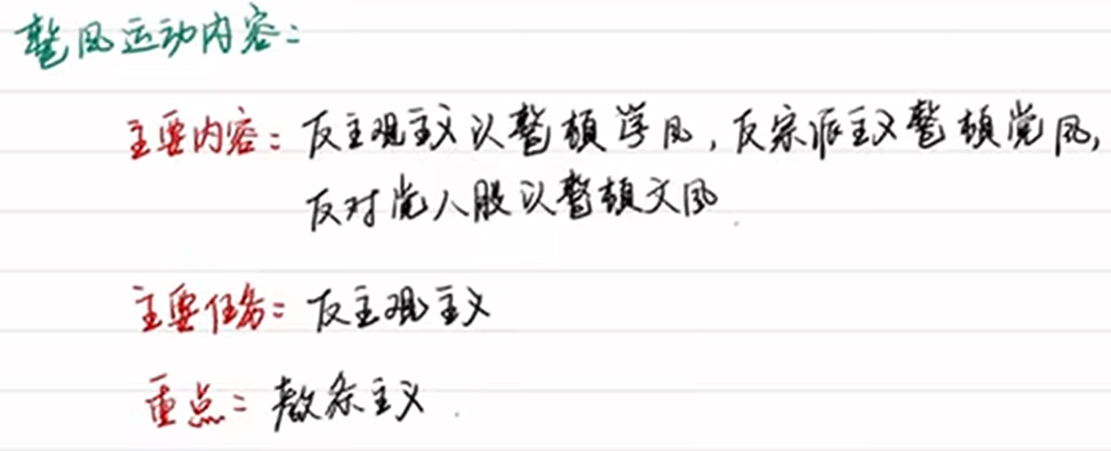 整风运动内容：
主要内容：反主观主义以整顿学风，反宗派主义整顿党风，
反对党八股以整顿文风
主要任务：反主观主义
重点：教条主义